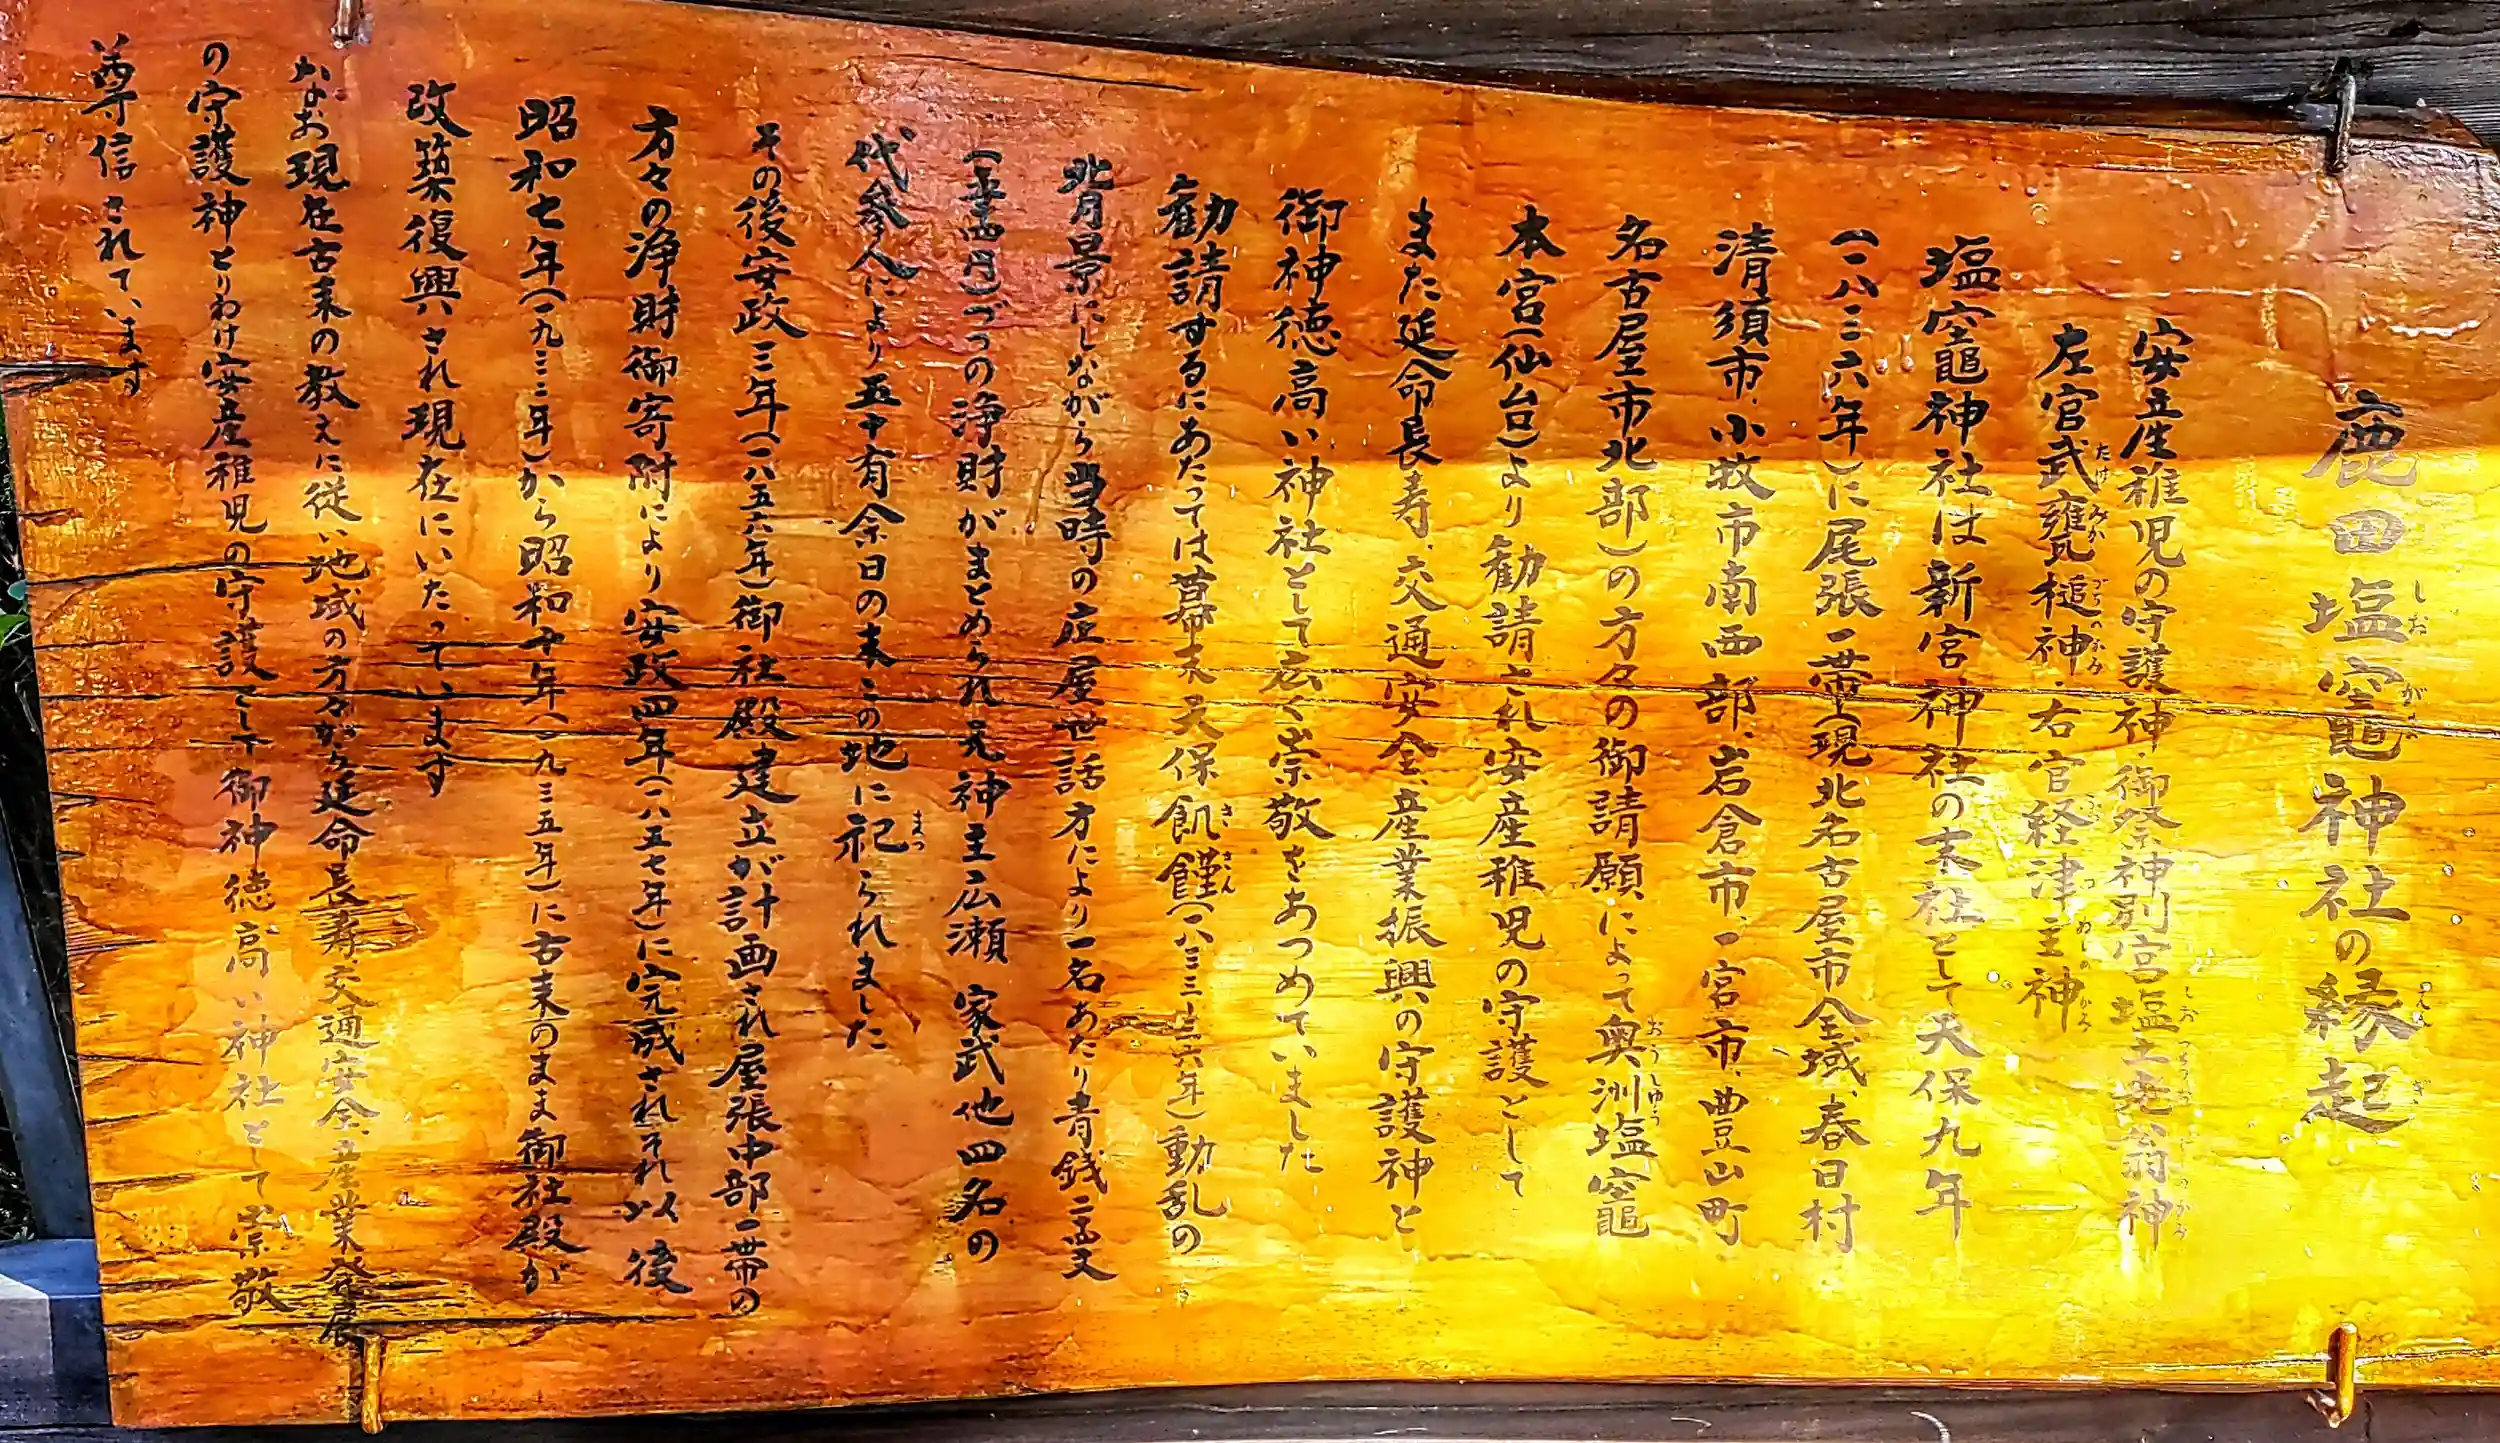 鹿田塩竈神社の縁起
安産稚児の守護神 御祭神別宮塩土老翁神
左官武甕槌神・右官経津主神
塩竈神社は新宮神社の末社として天保九年
(一八三六年)に尾張一帯(現北名古屋市全域、春日村
清須市、小牧市南西部、岩倉市、一宮市、豊山町、
名古屋市北部)の方々の御請願によって奥洲塩竈
本宮(仙台)より勧請され安産稚児の守護として
また延命長寿、交通安全、産業振興の守護神と
御神徳高い神社として広く崇敬をあつめていました
勧請するにあたっては幕末天保飢饉(一八三三〜三六年)動乱の
背景にしながら当時の庄屋世話方により一名あたり青銭二百文
づつの浄財がまとめられ元神主広瀬 家武他四名の
代参人により五十有余日の末この地に祀られました
その後安政三年(一八五六年)御社殿建立が計画され尾張中部一帯の
方々の浄財御寄附により安政四年(一八五七年)に完成されそれ以後
昭和七年(一九三二年)から昭和十年(一九三五年)に古来のまま御社殿が
改築復興され現在にいたっています
なお現在古来の教えに従い地域の方々から延命長寿交通安全、産業発展
の守護神とりわけ安産稚児の守護として御神徳高い神社として崇敬
尊信されています